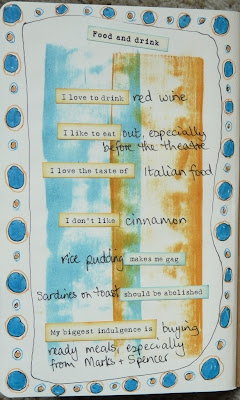 Food and drink
I love to drink red wine
I like to eat out, especially
before the theatre
I love the taste of Italian food
I don't like cinnamon
rice pudding makes me gag
Sardines on toast should be abolished
My biggest indulgence is buying
ready meals, especially
from Marks + Spencer